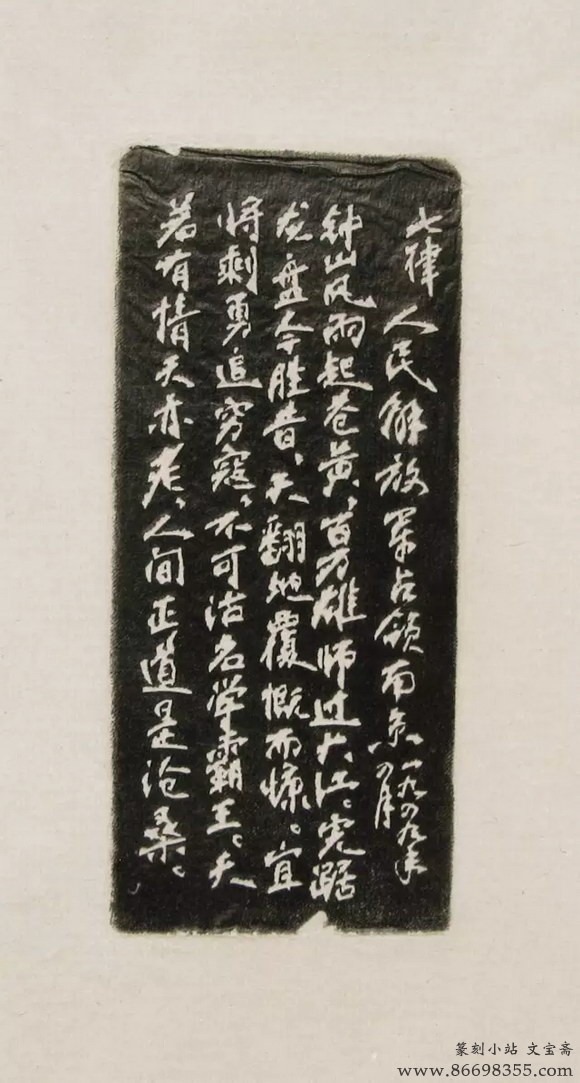 七律 人民解放军占领南京 一九四九年四月
钟山风雨起苍黄，百万雄师过大江。虎踞
龙盘今胜昔，天翻地覆慨而慷。宜
将剩勇追穷寇，不可沽名学霸王。天
若有情天亦老，人间正道是沧桑。
篆刻小站 文宝斋
www.86698355.com